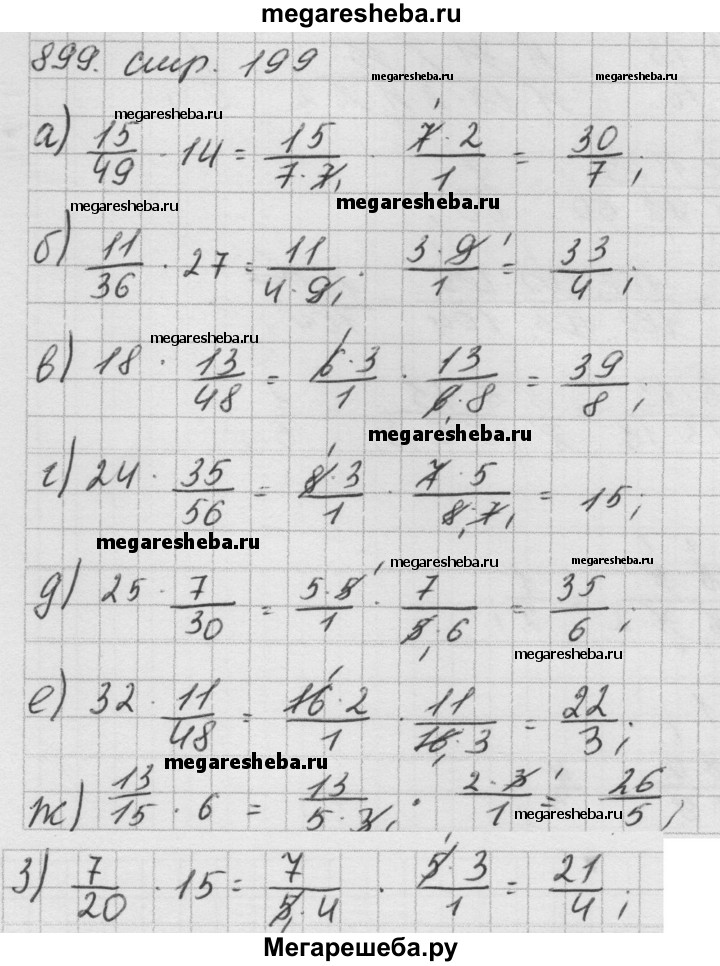 megaresheba.ru
899. стр. 199
megaresheba.ru megaresheba.ru
megaresheba.ru
а) 15/49 · 14 = 15/(7·7) · (7·2)/1 = 30/7;
megaresheba.ru megaresheba.ru
б) 11/36 · 27 = 11/(4·9) · (3·9)/1 = 33/4;
megaresheba.ru
в) 18 · 13/48 = (6·3)/1 · 13/(6·8) = 39/8;
megaresheba.ru
г) 24 · 35/56 = (8·3)/1 · (7·5)/(8·7) = 15;
megaresheba.ru megaresheba.ru megaresheba.ru
д) 25 · 7/30 = (5·5)/1 · 7/(5·6) = 35/6;
megaresheba.ru
е) 32 · 11/48 = (16·2)/1 · 11/(16·3) = 22/3;
megaresheba.ru
ж) 13/15 · 6 = 13/(5·3) · (2·3)/1 = 26/5;
megaresheba.ru
з) 7/20 · 15 = 7/(5·4) · (5·3)/1 = 21/4;
Мегарешеба.ру